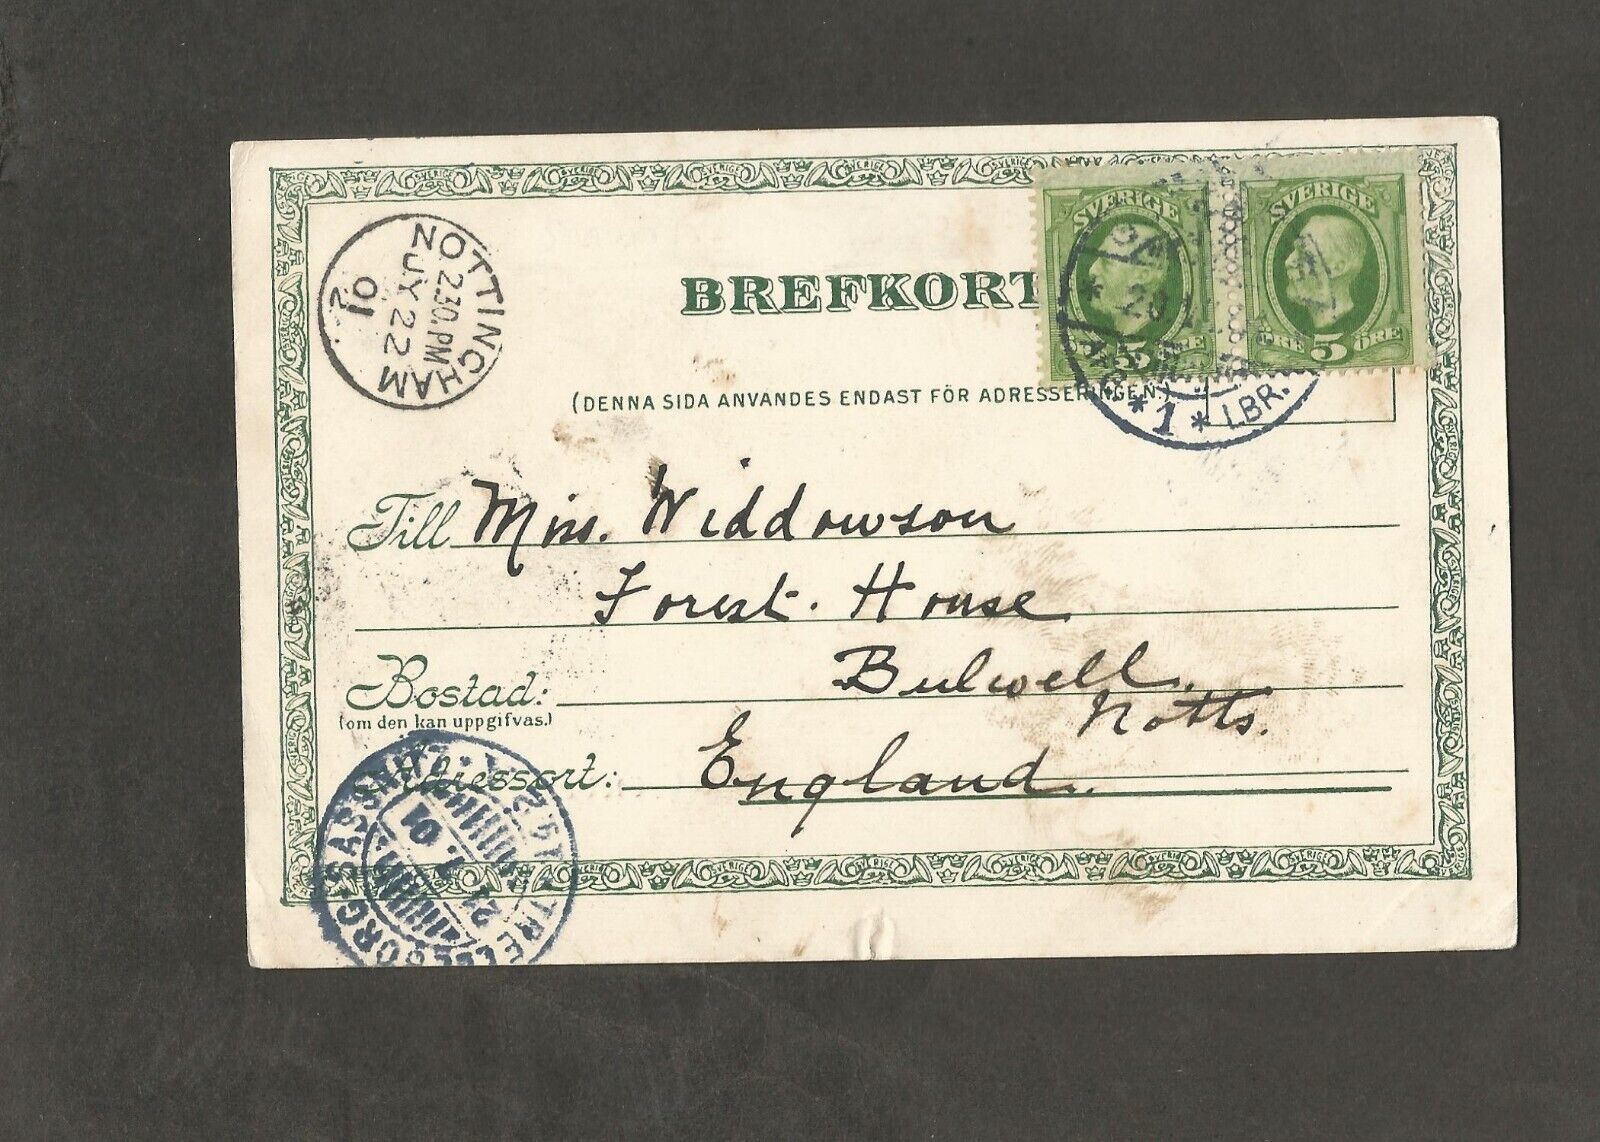 SVERIGE
5 ÖRE
SVERIGE
ÖRE 5 ÖRE
BREFKORT
(DENNA SIDA ANVÄNDES ENDAST FÖR ADRESSERINGEN.)
NOTTINGHAM
2.30.PM
JY 22
01
* 1 * 1.BR.
20
Till Miss. Widdowson
Forest. House
Bostad: Bulwell.
(om den kan uppgifvas.)
Notts.
Adressort: England.
SASSNITZ
TRELLEBORG
21 01